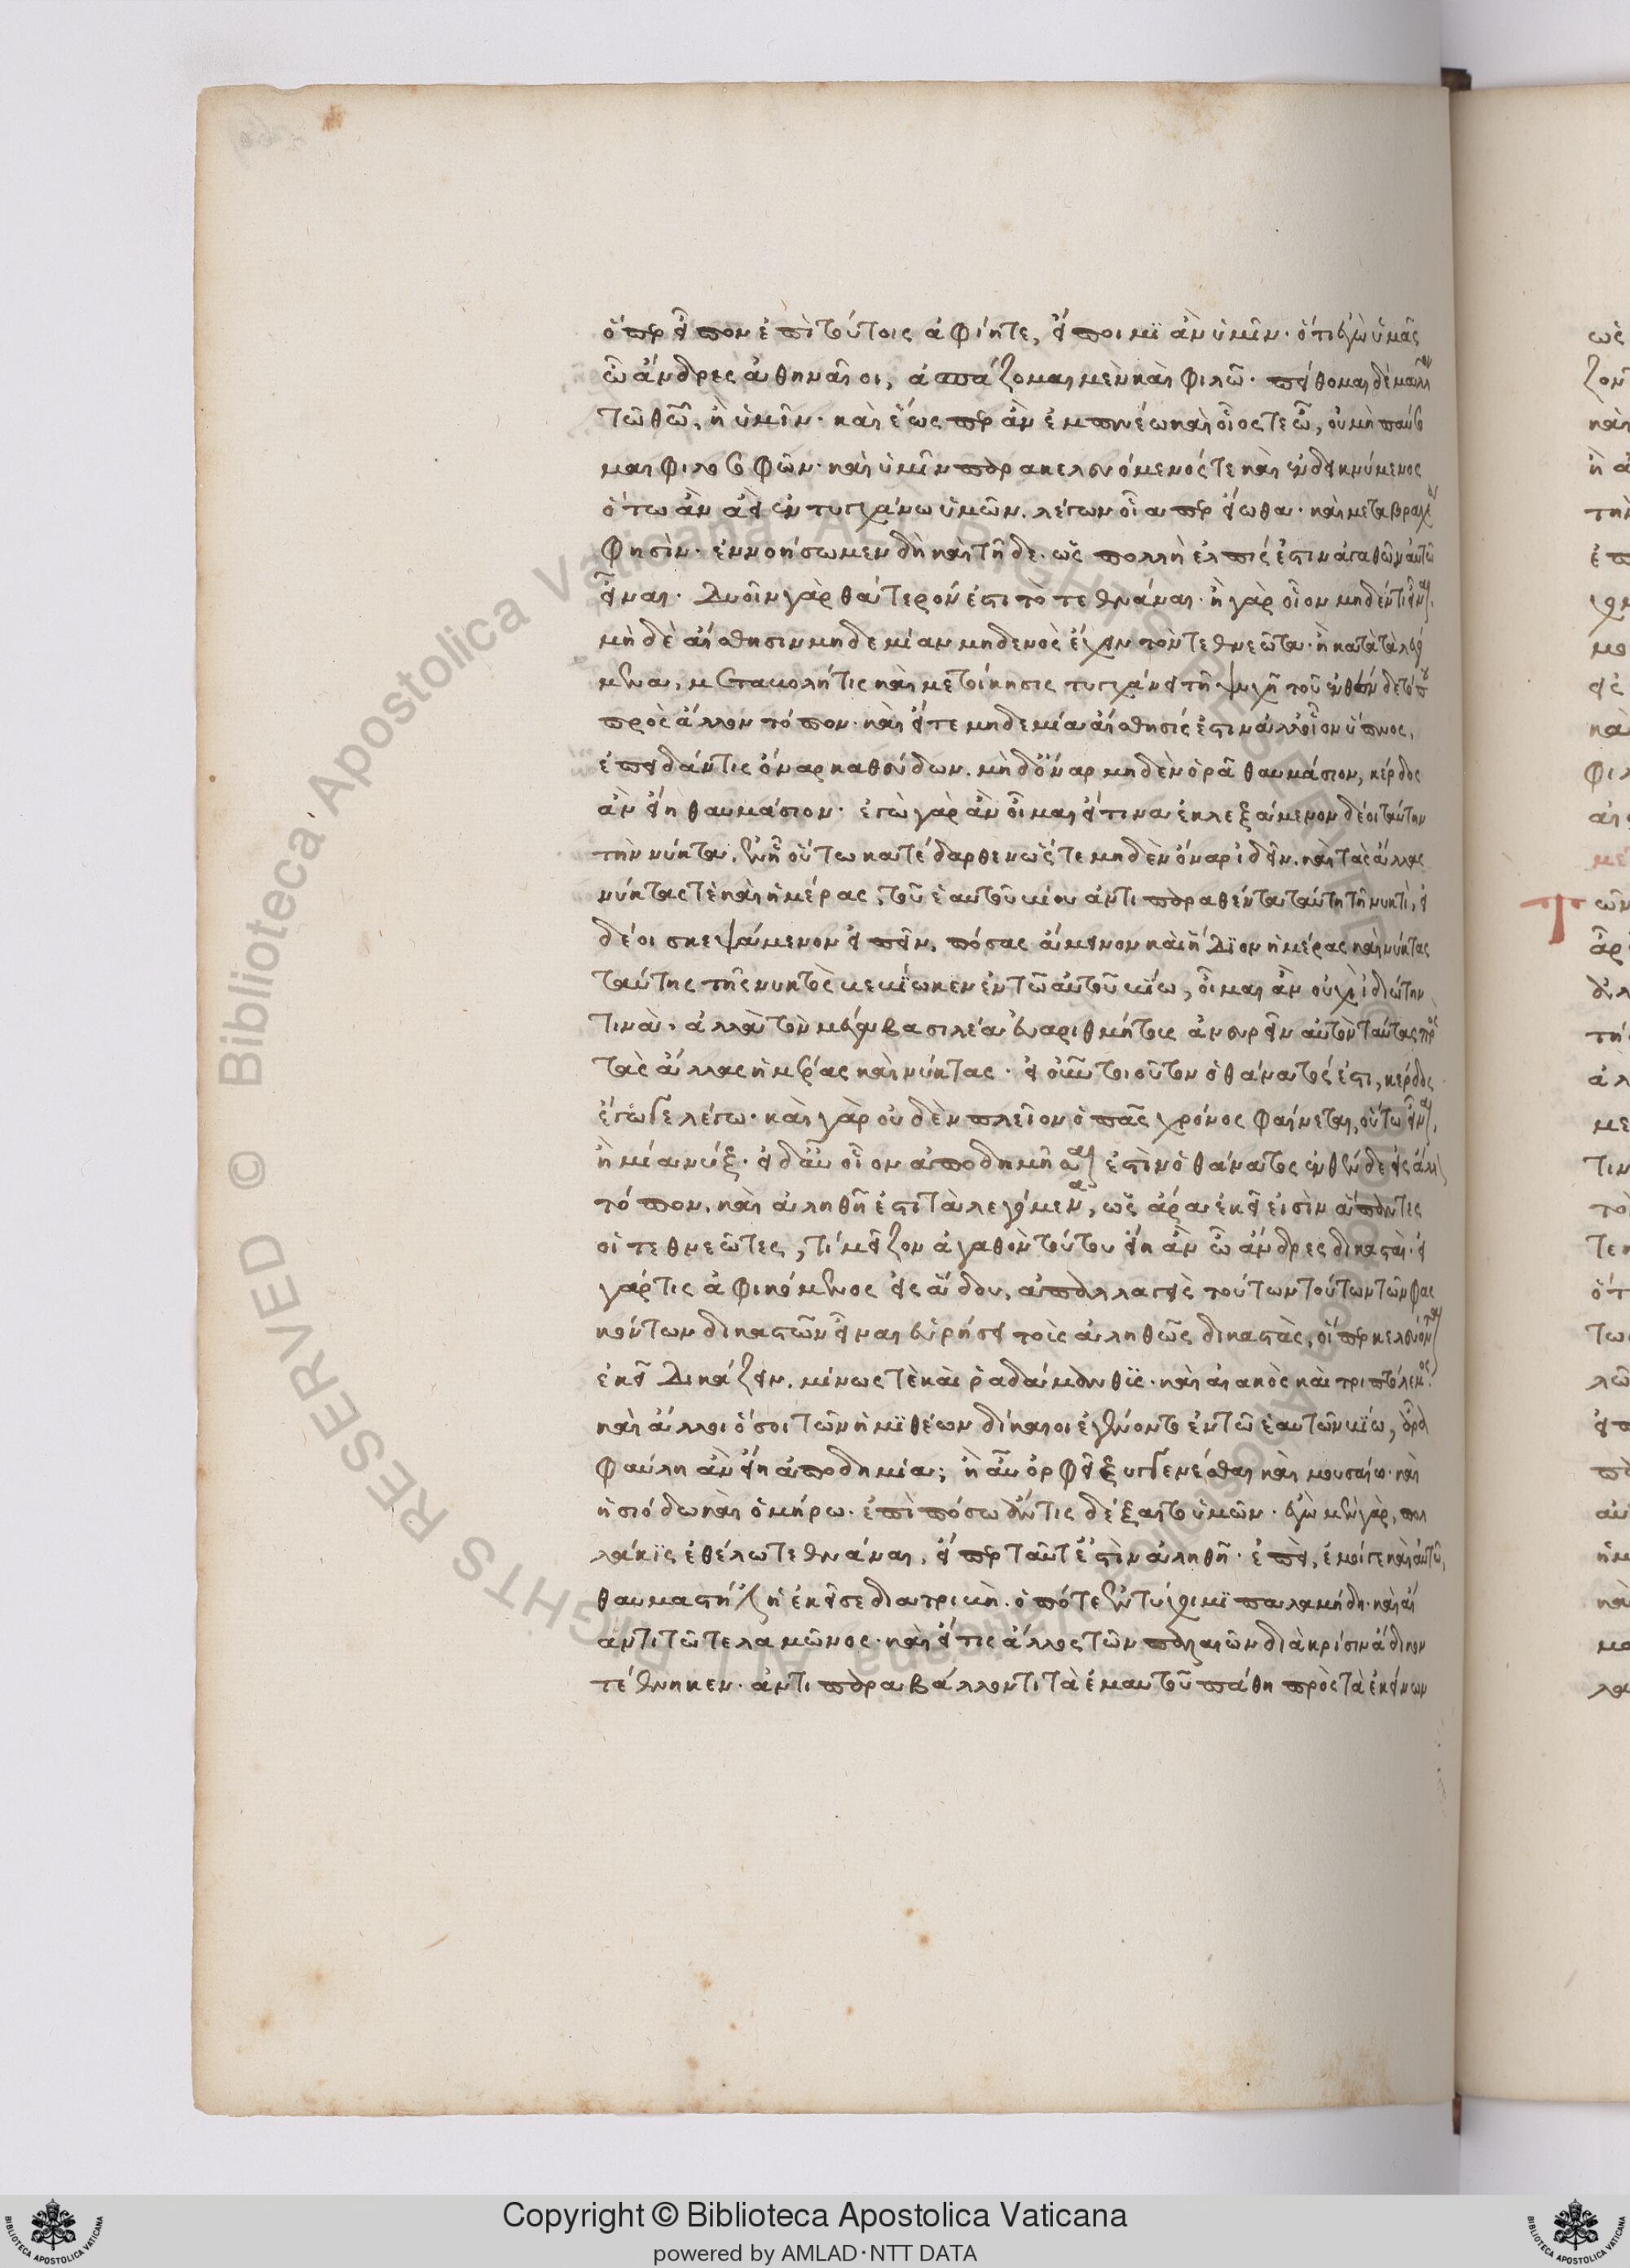 ὅπερ εἶπον ἐπὶ τούτοις ἀφίητε, εἴποιμι ἂν ὑμῖν· ὅτι ἐγὼ ὑμᾶς
ὦ ἄνδρες ἀθηναῖοι, ἀσπάζομαι μὲν καὶ φιλῶ· πείθομαι δὲ μᾶλλον
τῶ θεῶ, ἢ ὑμῖν· καὶ ἕως περ ἂν ἐμπνέω καὶ οἷός τε ὦ, οὐ μὴ παύσο
μαι φιλοσοφῶν· καὶ ὑμῖν παρακελευόμενός τε καὶ ἐνδεικνύμενος
ὅτω ἂν ἀεὶ ἐντυγχάνω ὑμῶν. λέγων οἷα περ εἴωθα· καὶ μετα βραχέα
φησίν· ἐννοήσωμεν δὴ καὶ τῆδε. ὡς πολλὴ ἐλπίς ἐστιν ἀγαθὸν αὐτὸ
εἶναι· δυοῖν γὰρ θάτερόν ἐστι τὸ τεθνάναι· ἢ γὰρ οἷον μηδέν τι εἶναι,
μὴ δὲ αἴσθησιν μηδεμίαν μηδενὸς ἔχειν τὸν τεθνεῶτα· ἢ κατὰ τὰ λεγό
μενα, μεταβολή τις καὶ μετοίκησις τυγχάνει τῆ ψυχῆ τοῦ ἐνθένδε τόπου
πρὸς ἄλλον τόπον· καὶ εἴτε μηδεμία αἴσθησίς ἐστιν ἀλλ' οἷον ὕπνος,
ἐπειδάν τις ὄναρ καθεύδων. μὴδ' ὄναρ μηδὲν ὁρᾶ θαυμάσιον, κέρδος
ἂν εἴη θαυμάσιον· ἐγὼ γὰρ ἂν οἶμαι εἴ τινα ἐκλεξάμενον δέοι ταύτην
τὴν νύκτα. ἐν ἧ οὕτω κατέδαρθεν ὥστε μηδὲν ὄναρ ἰδεῖν. καὶ τὰς ἄλλας
νύκτας τὲ καὶ ἡμέρας, τοῦ ἑαυτοῦ βίου ἀντιπαραθέντα ταύτη τῆ νυκτὶ, εἰ
δέοι σκεψάμενον εἰπεῖν, πόσας ἄμεινον καὶ ἥδιον ἡμέρας καὶ νύκτας
ταύτης τῆς νυκτὸς βεβίωκεν ἐν τῶ αὑτοῦ βίω, οἶμαι ἂν οὐχὶ ἰδιώτην
τινὰ· ἀλλὰ τὸν μέγαν βασιλέα ἐναριθμήτους ἂν εὑρεῖν αὐτὸν ταύτας πρὸς
τὰς ἄλλας ἡμέρας καὶ νύκτας· εἰ οὖν τοιοῦτον ὁ θάνατός ἐστι, κέρδος
ἔγωγε λέγω· καὶ γὰρ οὐδὲν πλεῖον ὁ πᾶς χρόνος φαίνεται, οὕτω εἶναι,
ἢ μία νύξ· εἰ δ' αὖ οἷον ἀποδημῆσαι ἐστὶν ὁ θάνατος ἐνθένδε εἰς ἄλλον
τόπον. καὶ ἀληθῆ ἐστὶ τὰ λεγόμενα, ὡς ἄρα ἐκεῖ εἰσὶν ἅπαντες
οἱ τεθνεῶτες, τί μεῖζον ἀγαθὸν τούτου εἴη ἂν ὦ ἄνδρες δικασταί· εἰ
γάρ τις ἀφικόμενος εἰς ἅδου, ἀπαλλαγεὶς τούτων τούτων τῶν φας
κόντων δικαστῶν εἶναι εὑρήσει τοὺς ἀληθῶς δικαστὰς, οἵπερ καὶ λέγονται
ἐκεῖ δικάζειν. μίνως τὲ καὶ ῥαδάμανθυς· καὶ αἰακὸς καὶ τριπτόλεμος·
καὶ ἄλλοι ὅσοι τῶν ἡμιθέων δίκαιοι ἐγένοντο ἐν τῶ ἑαυτῶν βίω, ἆρα
φαύλη ἂν εἴη ἀποδημία; ἢ αὖ ὀρφεῖ ξυγγενέσθαι καὶ μουσαίω· καὶ
ἡσιόδω καὶ ὁμήρω· ἐπὶ πόσω ἄν τις δέξαιτο ὑμῶν· ἐγὼ μὲν γὰρ, πολ
λάκις ἐθέλω τεθνάναι, εἴπερ ταῦτ' ἐστὶν ἀληθῆ· ἐπεὶ, ἐμοί γε καὶ αὐτῶ,
θαυμαστὴ ἂν εἴη ἐκεῖσε διατριβὴ. ὁπότε ἐντύχοιμι παλαμήδη· καὶ αἴ
αντι τῶ τελαμῶνος· καὶ εἴ τις ἄλλος τῶν παλαιῶν διὰ κρίσιν ἄδικον
τέθνηκεν· ἀντιπαραβάλλοντι τὰ ἐμαυτοῦ πάθη πρὸς τὰ ἐκείνων